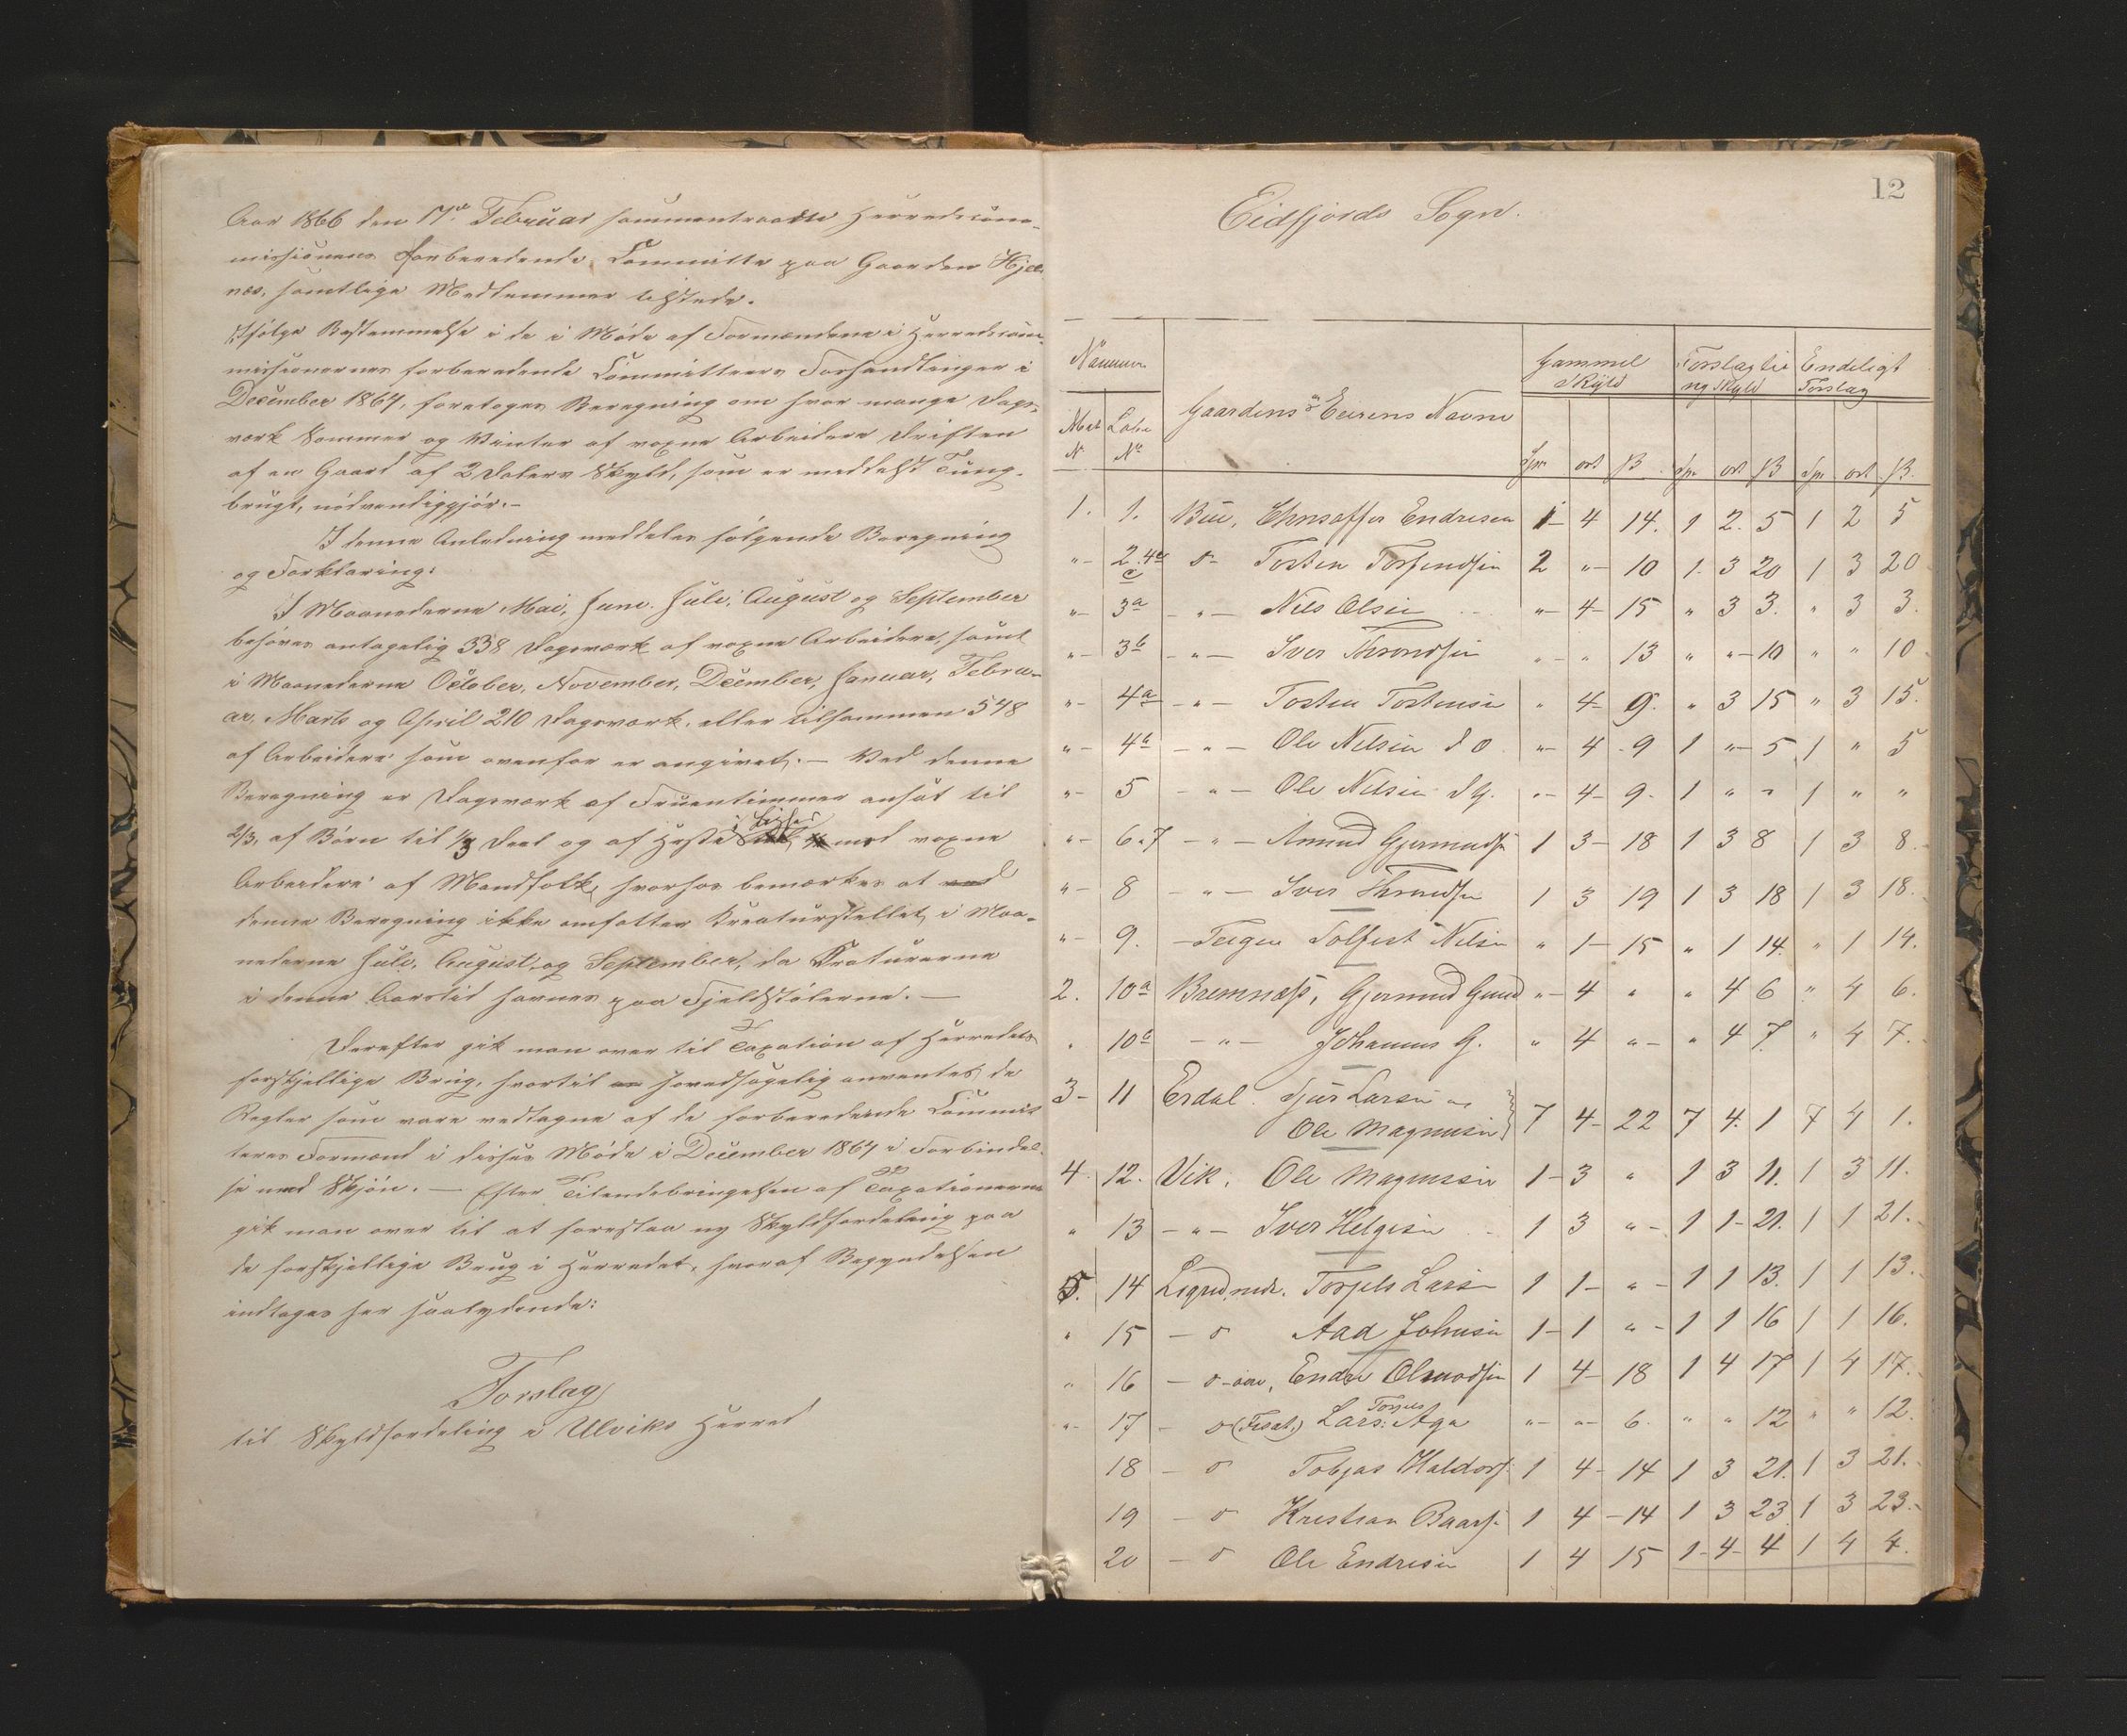 Aar 1866 den 17de Februar sammentraadte Herredscom-
missionens forberedende Committe paa Gaarden Hjel
næs, samtlige Medlemmer tilstede.
Ifølge Bestemmelse i de i Møde af Formændene i Herredscom-
missionernes forberedende Committeers Forhandlinger i
December 1864, foretoges Beregning om hvor mange Dags-
værk Sommer og Vinter af voxne Arbeidere Driften
af en Gaard af 2 Dalers Skyld, som er middelst Tung-
brugt, nødvendiggjør.-
I denne Anledning meddeles følgende Beregning
og Forklaring:
I Maanederne Mai, Juni. Juli, August og September
behøves antagelig 338 Dagsværk af voxne Arbeidere, samt
i Maanederne October, November, December, Januar, Febru-
ar, Marts og April 210 Dagsværk, eller tilsammen 548
af Arbeidere som ovenfor er angivet. - Ved denne
Beregning er Dagsværk af Fruentimmer ansat til
2/3, af Børn til 1/3 Deel og af Heste i Lighed med voxne
Arbeidere af Mandfolk, hvorhos bemærkes at
denne Beregning ikke omfatter Kreaturstellet i Maa-
nederne Juli, August og September, da Kreaturerne
i denne Aarstid havnes paa Fjeldstølerne. -
Derefter gik man over til Taxation af Herredets
forskjellige Brug, hvortil hovedsagelig anventes de
Regler som vare vedtagne af de forberedende Commit
teers Formænd i disses Møde i December 1864 i Forbindel-
se med Skjøn. - Efter Tilendebringelsen af Taxationerne
gik man over til at foreslaa ny Skyldfordeling paa
de forskjellige Brug i Herredet, hvoraf Begyndelsen
indtages her saalydende:
Forslag
til Skyldfordeling i Ulviks Herred
12
Eidfjords Sogn.
Nummer Gaardens og Eierens Navne Gammel Skyld Forslag til ny Skyld Endeligt Forslag
Mat N Løbe No Spd ort ß Spd ort ß Spd ort ß.
1. 1. Bu, Christoffer Endresen 1- 4 14. 1 2. 5 1 2 5
"- 2.4a c o- Tosten Torfindsen 2 "- 10 1. 3 20 1 3 20
"- 3a -"- Nils Olsen "- 4- 15 " 3 3. " 3 3.
"- 3b -"- Iver Throndsen "- " 13 " "- 10 " " 10
"- 4a -"- Tosten Tostensen " 4- 9. " 3 15 " 3 15.
"- 4b -"- Ole Nelsen d o "- 4- 9 1 "- 5 1 " 5
"- 5 -"- Ole Nelsen d y. "- 4- 9- 1 " " 1 " "
"- 6.7 -"- Amund Gjermunds 1 3- 18 1 3 8 1 3 8.
"- 8 -"- Iver Throndsen 1 3 19 1 3 18 1 3 18.
"- 9. -Teigen Tolfest Nilsen " 1- 15 " 1 14. " 1 14.
2. 10a Bremnæss, Gjermund Gund "- 4 " " 4 6 " 4 6.
" 10b -"- Johannes G. " 4 "- " 4 7. " 4 7.
3- 11 Erdal. Sjur Larsen og
Ole Magnusen 7 4- 22 7 4. 1 7 4 1.
4 12. Vik, Ole Magnussen 1- 3 " 1 3 11. 1 3 11.
" 13 -"- Iver Helgesen 1 3 "- 1 1- 21. 1 1 21.
5. 14 Legreid, nedr. Torjels Larsen 1 1- "- 1 1 13. 1 1 13.
" 15 - o Aad Johnsen 1- 1 "- 1 1 16 1 1 16.
" 16 - o- øvr, Endre Olmodsen 1 4- 18 1 4 17 1 4 17.
"- 17 - o (Tveit.) Lars Torjels Aga "- "- 6. " " 12 " " 12.
18 - o Tobjas Haldors. 1 4- 14 1 3 21. 1 3 21.
19 - o Kristian Baars. 1 4- 14 1 3 23 1 3 23.
20 - o Ole Endresen 1 4 15 1- 4- 4 1 4 4.